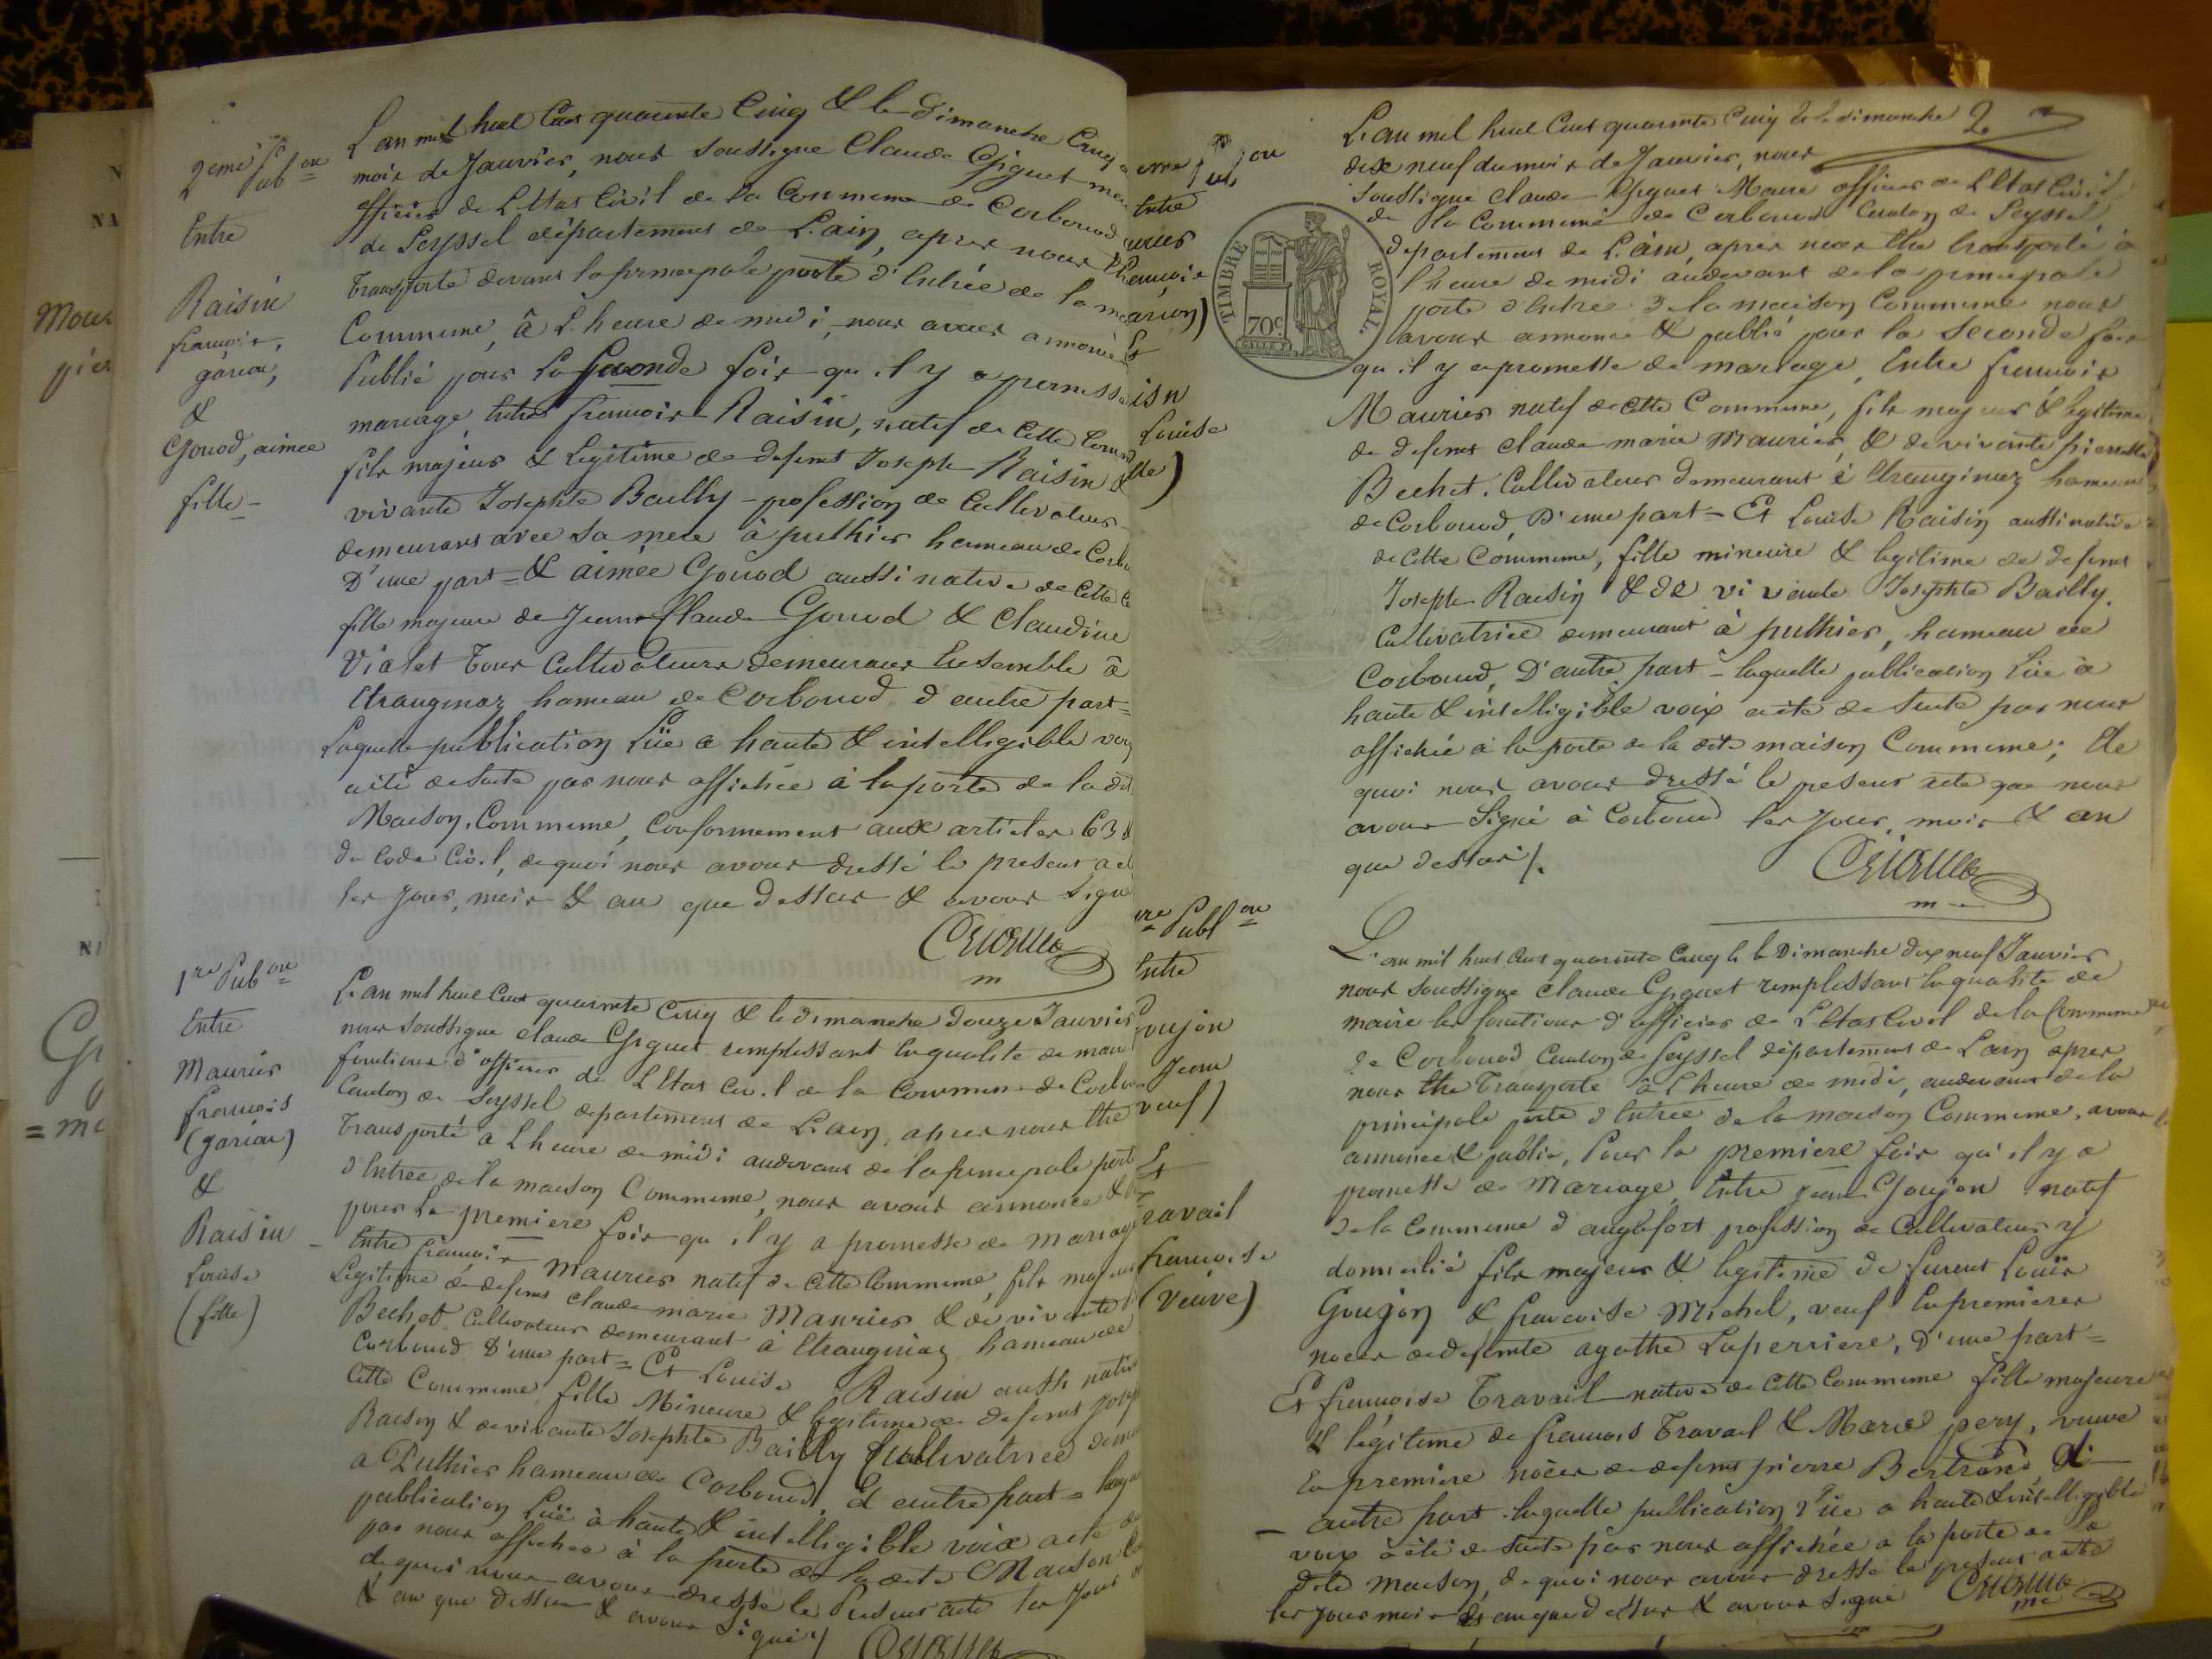 2eme Pub on
Entre
Raisin
francois,
garion,
&
Gonod, aimée
fille =
L'an mil huit Cent quarante Cinq & le dimanche Cinq
mois de Janvier, nous soussigne Claude Giguet
officier de L'Etat Civil de la Commune de Corbonod
de Seyssel département de L'ain, apres nous
transporté devant la principale porte d'Entrée de la
Commune, à L'heure de midi, nous avons annoncé
Publié pour la Seconde fois qu'il y a promesse
mariage, Entre francois Raisin, natif de Cette
fils majeur & Legitime de defunt Joseph Raisin &
vivante Josephte Bailly - profession de Cultivateur
demeurant avec sa mere à puthier hameau de
D'une part = & aimée Gonod aussi native de Cette
fille majeure de Jean Claude Gonod & Claudine
Vialet tous Cultivateurs demeurant Ensemble à
Etranginaz hameau de Corbonod d'autre part =
Laquelle publication Lüe a haute & intelligible
a été de suite par nous affichée à la porte de la
Maison, Commune, Conformement aux articles 63 &
du Code Civil, de quoi nous avons dressé le present
les jour, mois & an que dessus & avons signé
1re Pub on
Entre
Maurier
francois
(garion)
&
Raisin
Louise
(fille)
L'an mil huit Cent quarante Cinq & le dimanche douze Janvier
nous soussigne Claude Giguet remplissant la qualité de maire
fonctions d'officier de L'Etat Civil de la Commune de
Canton de Seyssel departement de L'ain, apres nous Etre
transporté a L'heure de midi audevant de la principale porte
d'Entrée de la maison Commune, nous avons annoncé &
pour La premiere fois qu'il y a promesse de mariage
Entre francois Maurier natif de Cette Commune, fils majeur
Legitime de defunt Claude marie Maurier & de vivante
Bechet Cultivateur demeurant à Etranginaz hameau de
Corbonod D'une part = Et Louise Raisin aussi native
Cette Commune fille Mineure & legitime de defunt
Raisin & de vivante Josephte Bailly Cultivatrice
a Puthier hameau de Corbonod, d'autre part =
publication Lüe à haute & intelligible voix a été de
par nous affichée à la porte de la dite Maison
de quoi nous avons dressé le Present acte les jour
& an que dessus & avons Signé /
Entre
Louise
1re Publ on
Entre
Goujon
Jean
veuf)
Et
Travail
francoise
(veuve)
TIMBRE ROYAL
70c.
2
L'an mil huit Cent quarante Cinq & le dimanche
dix neuf du mois de Janvier, nous
soussigne Claude Giguet Maire officier de L'Etat Civil
de la Commune de Corbonod Canton de Seyssel
departement de L'ain, apres nous Etre transporté à
l'heure de midi audevant de la principale
porte d'Entrée de la maison Commune nous
avons annoncé & publié pour la Seconde fois
qu'il y a promesse de mariage, Entre francois
Maurier natif de Cette Commune, fils majeur & legitime
de defunt Claude marie Maurier, & de vivante pierrette
Bechet. Cultivateur demeurant à Etranginaz hameau
de Corbonod, D'une part = Et Louise Raisin aussi native
de Cette Commune, fille mineure & legitime de defunt
Joseph Raisin & de vivante Josephte Bailly.
Cultivatrice demeurant à puthier, hameau de
Corbonod, D'autre part - laquelle publication Lüe à
haute & intelligible voix a été de suite par nous
affichée à la porte de la dite maison Commune; de
quoi nous avons dressé le present acte que nous
avons Signé à Corbonod les jour, mois & an
que dessus /.
L'an mil huit Cent quarante Cinq & le Dimanche dix neuf Janvier
nous soussigne Claude Giguet remplissant la qualité de
maire les fonctions d'officier de L'Etat Civil de la Commune
de Corbonod Canton de Seyssel département de L'ain apres
nous Etre Transporté à L'heure de midi, audevant de la
principale porte d'Entrée de la maison Commune, avons
annoncé & publié, Pour la premiere fois qu'il y a
promesse de Mariage, Entre Jean Goujon natif
de la Commune d'anglefort profession de Cultivateur y
domicilié fils majeur & legitime de furent Louis
Goujon & francoise Michel, veuf En premieres
noces de defunte agathe Laperriere, D'une part =
Et francoise Travail native de Cette Commune fille majeure
& légitime de francois Travail & Marie pery, veuve
En premiere noces de defunt pierre Bertrand d'
autre part. laquelle publication Lüe a haute & intelligible
voix a été de suite par nous affichée a la porte de la
dite maison, de quoi nous avons dressé le present acte
les jour mois & an que dessus & avons Signé